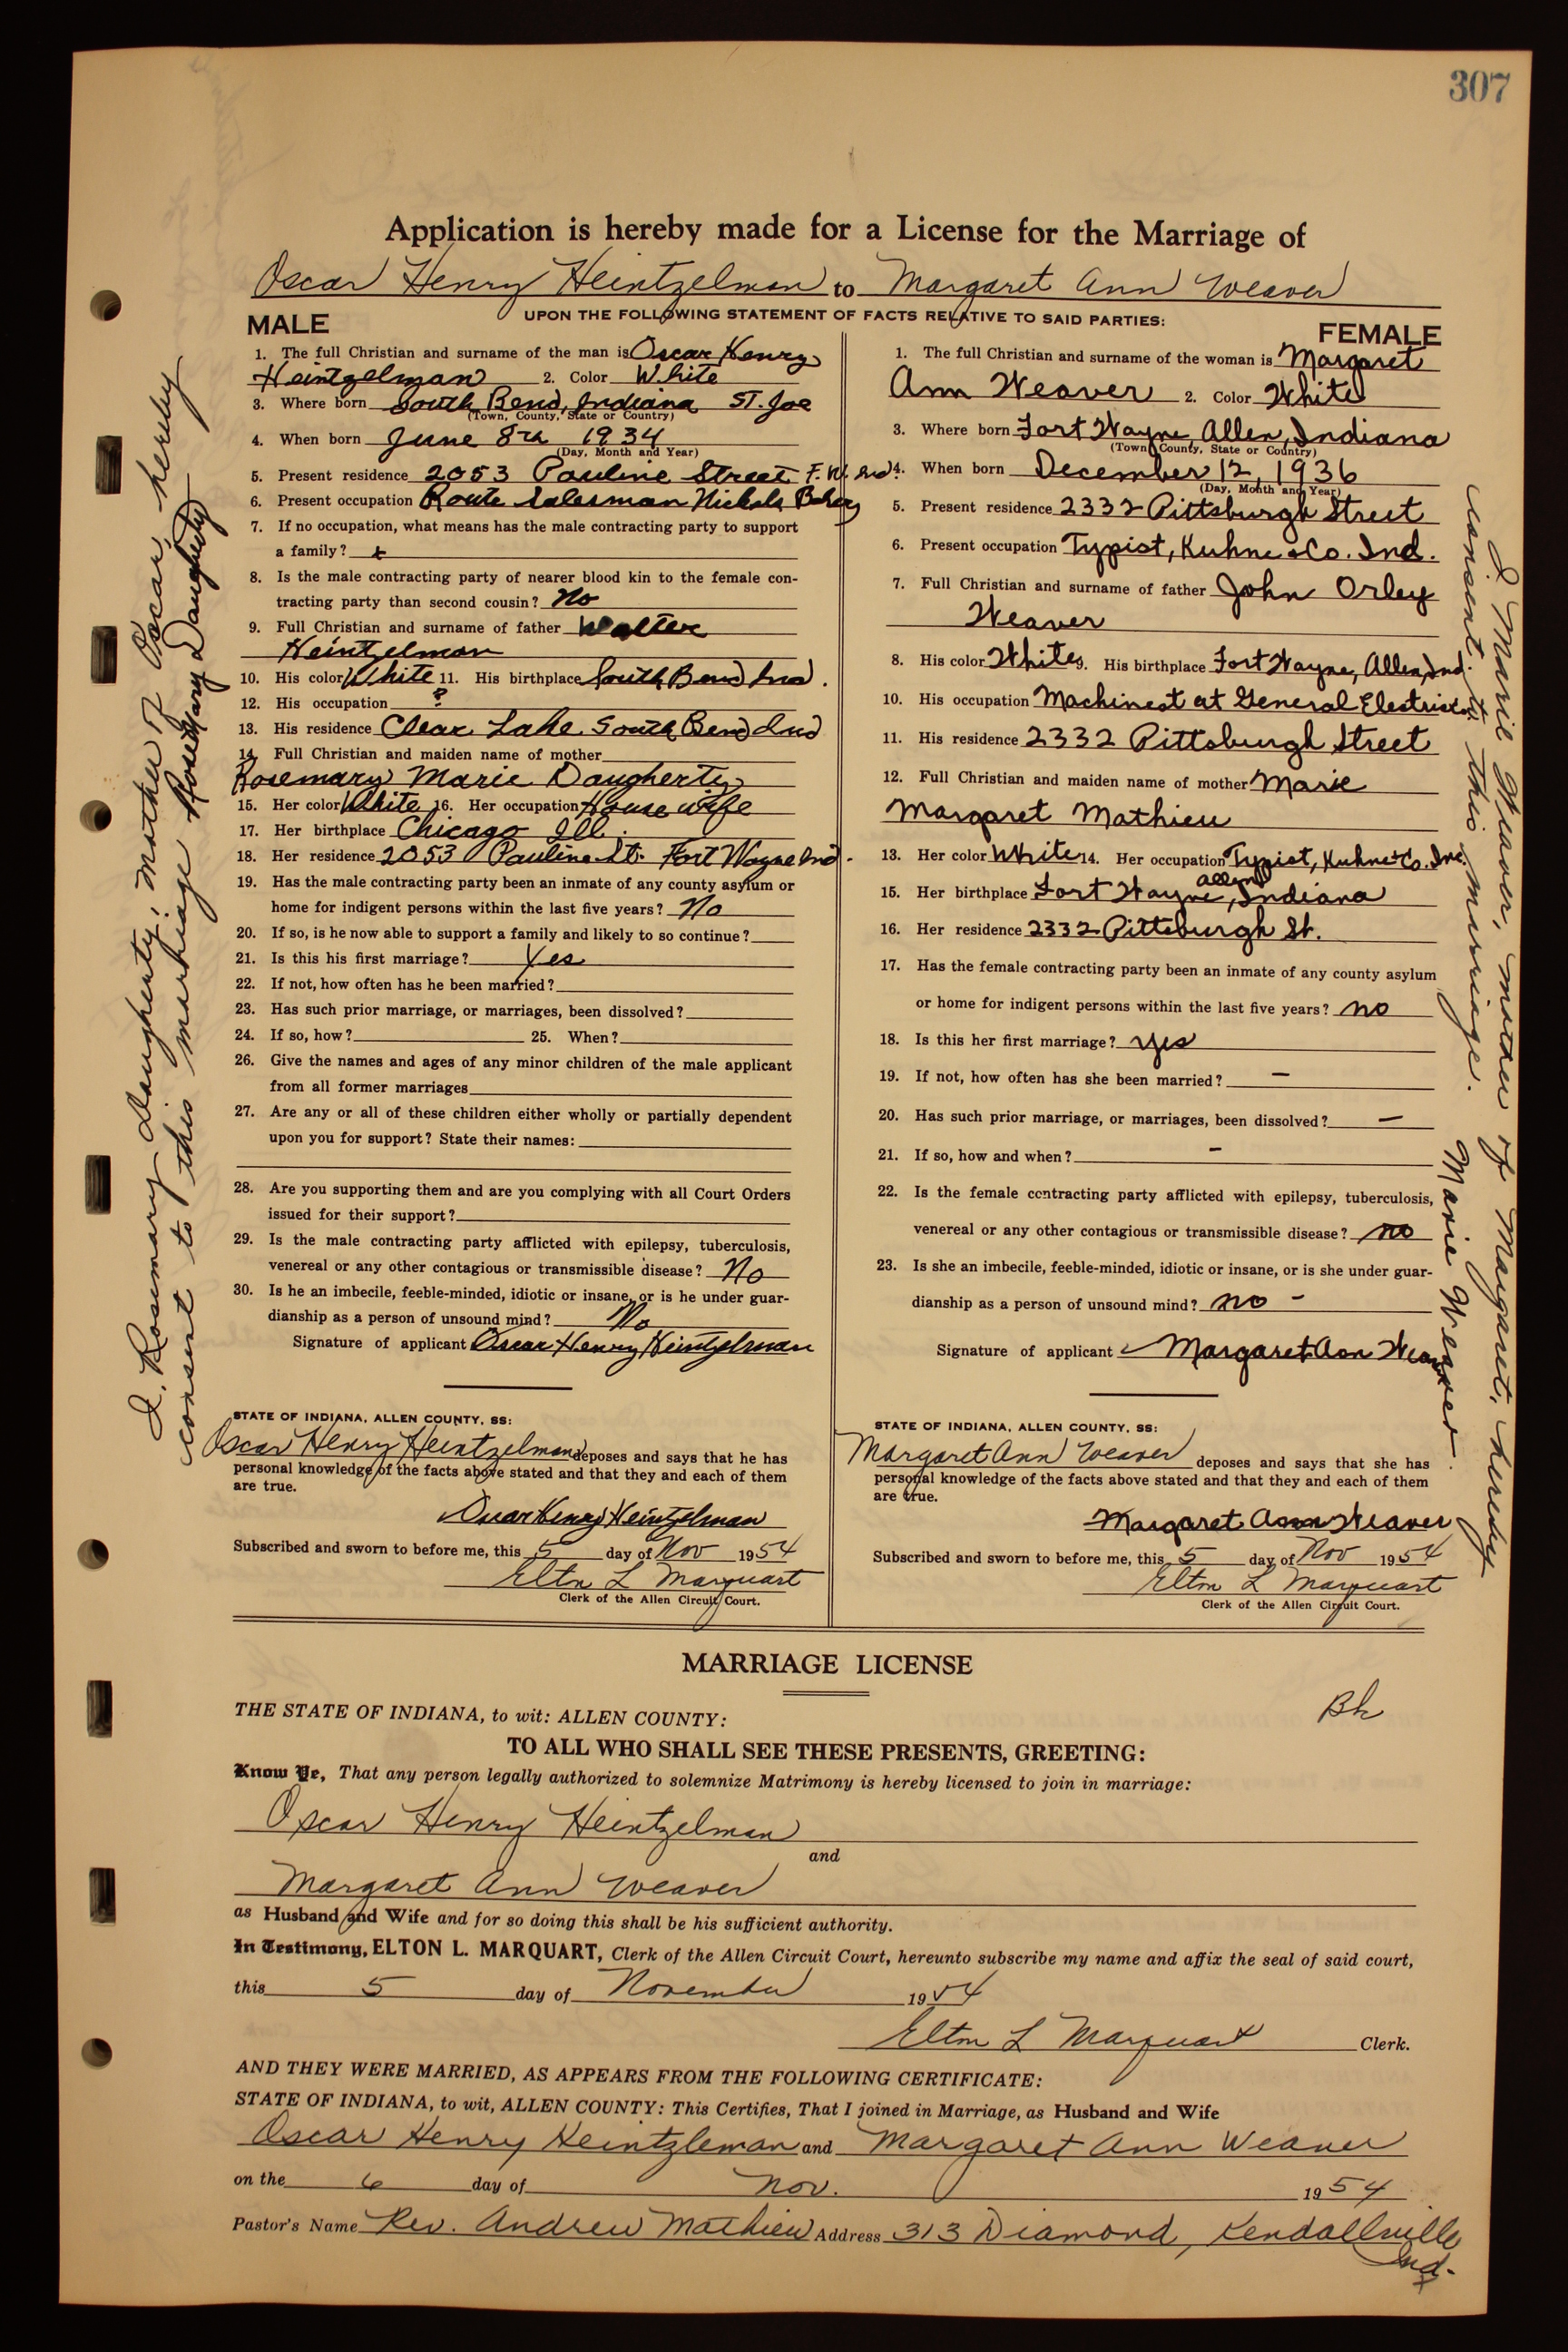 307
Application is hereby made for a License for the Marriage of
Oscar Henry Heintzelman to Margaret Ann Weaver
UPON THE FOLLOWING STATEMENT OF FACTS RELATIVE TO SAID PARTIES:
MALE
1. The full Christian and surname of the man is Oscar Henry
Heintzelman 2. Color White
3. Where born South Bend, Indiana ST. Joe
(Town, County, State or Country)
4. When born June 8th 1934
(Day, Month and Year)
5. Present residence 2053 Pauline Street F. W. Ind
6. Present occupation Route Salesman Nickols Bakery
7. If no occupation, what means has the male contracting party to support
a family?
8. Is the male contracting party of nearer blood kin to the female con-
tracting party than second cousin? No
9. Full Christian and surname of father Walter
Heintzelman
10. His color White 11. His birthplace South Bend Ind.
12. His occupation ?
13. His residence Clear Lake South Bend Ind
14. Full Christian and maiden name of mother
Rosemary Marie Daugherty
15. Her color White 16. Her occupation House wife
17. Her birthplace Chicago Ill.
18. Her residence 2053 Pauline St. Fort Wayne Ind.
19. Has the male contracting party been an inmate of any county asylum or
home for indigent persons within the last five years? No
20. If so, is he now able to support a family and likely to so continue?
21. Is this his first marriage? Yes
22. If not, how often has he been married?
23. Has such prior marriage, or marriages, been dissolved?
24. If so, how? 25. When?
26. Give the names and ages of any minor children of the male applicant
from all former marriages
27. Are any or all of these children either wholly or partially dependent
upon you for support? State their names:
28. Are you supporting them and are you complying with all Court Orders
issued for their support?
29. Is the male contracting party afflicted with epilepsy, tuberculosis,
venereal or any other contagious or transmissible disease? No
30. Is he an imbecile, feeble-minded, idiotic or insane, or is he under guar-
dianship as a person of unsound mind? No
Signature of applicant Oscar Henry Heintzelman
STATE OF INDIANA, ALLEN COUNTY, SS:
Oscar Henry Heintzelman deposes and says that he has
personal knowledge of the facts above stated and that they and each of them
are true.
Oscar Henry Heintzelman
Subscribed and sworn to before me, this 5 day of Nov 1954
Elton L Marquart
Clerk of the Allen Circuit Court.
I, Rosemary Daugherty, mother of Oscar, hereby
consent to this marriage Rosemary Daugherty
FEMALE
1. The full Christian and surname of the woman is Margaret
Ann Weaver 2. Color White
3. Where born Fort Wayne, Allen, Indiana
(Town, County, State or Country)
4. When born December 12, 1936
(Day, Month and Year)
5. Present residence 2332 Pittsburgh Street
6. Present occupation Typist, Kuhne & Co. Ind.
7. Full Christian and surname of father John Orley
Weaver
8. His color White 9. His birthplace Fort Wayne, Allen, Ind.
10. His occupation Machinest at General Electric
11. His residence 2332 Pittsburgh Street
12. Full Christian and maiden name of mother Marie
Margaret Mathieu
13. Her color White 14. Her occupation Typist, Kuhne & Co. Inc.
15. Her birthplace Fort Wayne, Allen, Indiana
16. Her residence 2332 Pittsburgh St.
17. Has the female contracting party been an inmate of any county asylum
or home for indigent persons within the last five years? no
18. Is this her first marriage? yes
19. If not, how often has she been married? -
20. Has such prior marriage, or marriages, been dissolved? -
21. If so, how and when? -
22. Is the female contracting party afflicted with epilepsy, tuberculosis,
venereal or any other contagious or transmissible disease? no
23. Is she an imbecile, feeble-minded, idiotic or insane, or is she under guar-
dianship as a person of unsound mind? no -
Signature of applicant Margaret Ann Weaver
STATE OF INDIANA, ALLEN COUNTY, SS:
Margaret Ann Weaver deposes and says that she has
personal knowledge of the facts above stated and that they and each of them
are true.
Margaret Ann Weaver
Subscribed and sworn to before me, this 5 day of Nov 1954
Elton L Marquart
Clerk of the Allen Circuit Court.
I, Marie Weaver, mother of Margaret, hereby
consent to this marriage.
Marie Weaver.
MARRIAGE LICENSE
THE STATE OF INDIANA, to wit: ALLEN COUNTY:
Bk
TO ALL WHO SHALL SEE THESE PRESENTS, GREETING:
Know Ye, That any person legally authorized to solemnize Matrimony is hereby licensed to join in marriage:
Oscar Henry Heintzelman
and
Margaret Ann Weaver
as Husband and Wife and for so doing this shall be his sufficient authority.
In Testimony, ELTON L. MARQUART, Clerk of the Allen Circuit Court, hereunto subscribe my name and affix the seal of said court,
this 5 day of November 1954
Elton L Marquart Clerk.
AND THEY WERE MARRIED, AS APPEARS FROM THE FOLLOWING CERTIFICATE:
STATE OF INDIANA, to wit, ALLEN COUNTY: This Certifies, That I joined in Marriage, as Husband and Wife
Oscar Henry Heintzleman and Margaret Ann Weaver
on the 6 day of Nov. 1954
Pastor's Name Rev. Andrew Mathieu Address 313 Diamond, Kendallville
Ind.